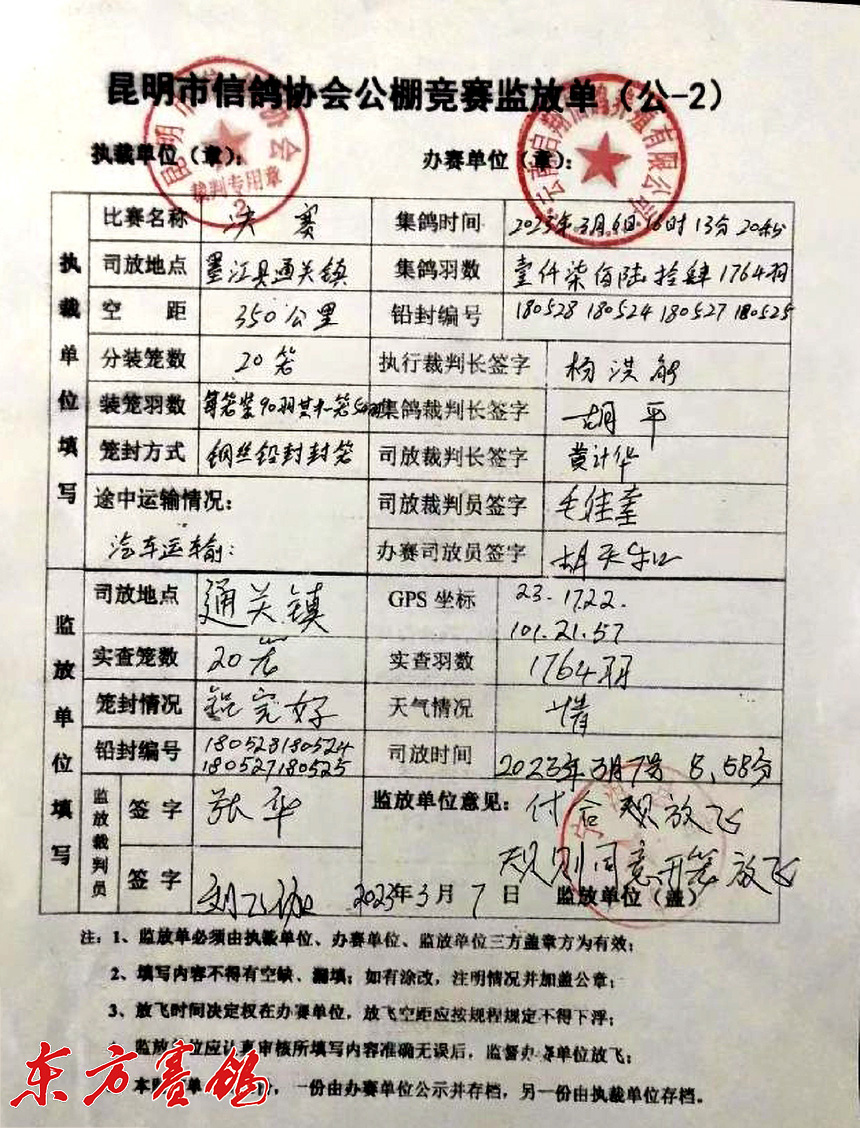 昆明市信鸽协会公棚竞赛监放单（公-2）
执裁单位（章）： 办赛单位（章）：
裁判专用章
2
执裁单位填写
比赛名称 决赛 集鸽时间 2023年3月6日16时13分20秒
司放地点 墨江县通关镇 集鸽羽数 壹仟柒佰陆拾肆 1764羽
空 距 350公里 铅封编号 180528 180524 180527 180525
分装笼数 20笼 执行裁判长签字
装笼羽数 每笼装90羽其中一笼54羽 集鸽裁判长签字 胡平
笼封方式 钢丝铅封封笼 司放裁判长签字 黄计华
途中运输情况： 司放裁判员签字
汽车运输： 办赛司放员签字
监放单位填写
司放地点 通关镇 GPS 坐标 23.17.22.
101.21.57
实查笼数 20 实查羽数 1764羽
笼封情况 完好 天气情况 晴
铅封编号 180528180524 司放时间 2023年3月7号 8,58分
180527180525
监放裁判员 签 字 张华 监放单位意见： 付合规放飞
规则同意开笼放飞
签 字 2023年3月7日 监放单位（盖）
注：1、监放单必须由执裁单位、办赛单位、监放单位三方盖章方为有效；
2、填写内容不得有空缺、漏填；如有涂改，注明情况并加盖公章；
3、放飞时间决定权在办赛单位，放飞空距应按规程规定不得下浮；
监放单位应认真审核所填写内容准确无误后，监督办赛单位放飞；
一份由办赛单位公示并存档，另一份由执裁单位存档。
东方赛鸽